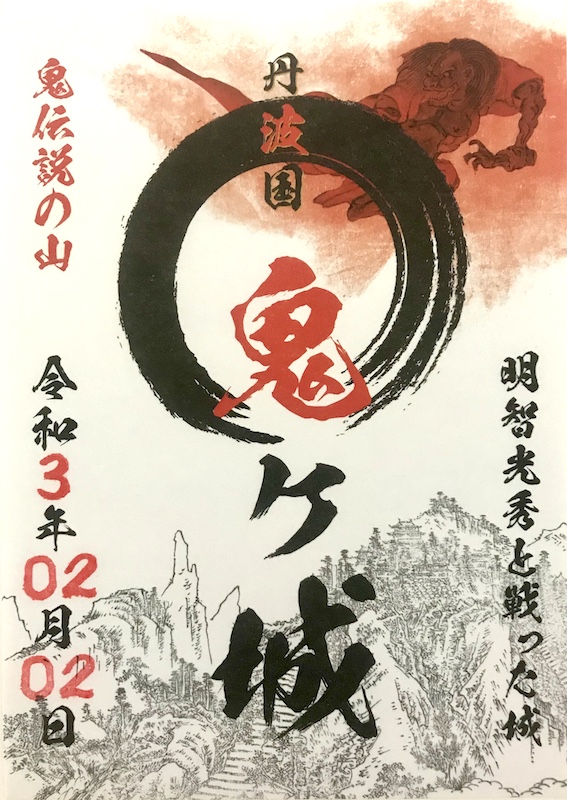 丹波国
鬼ヶ城
明智光秀と戦った城
鬼伝説の山
令和3年02月02日